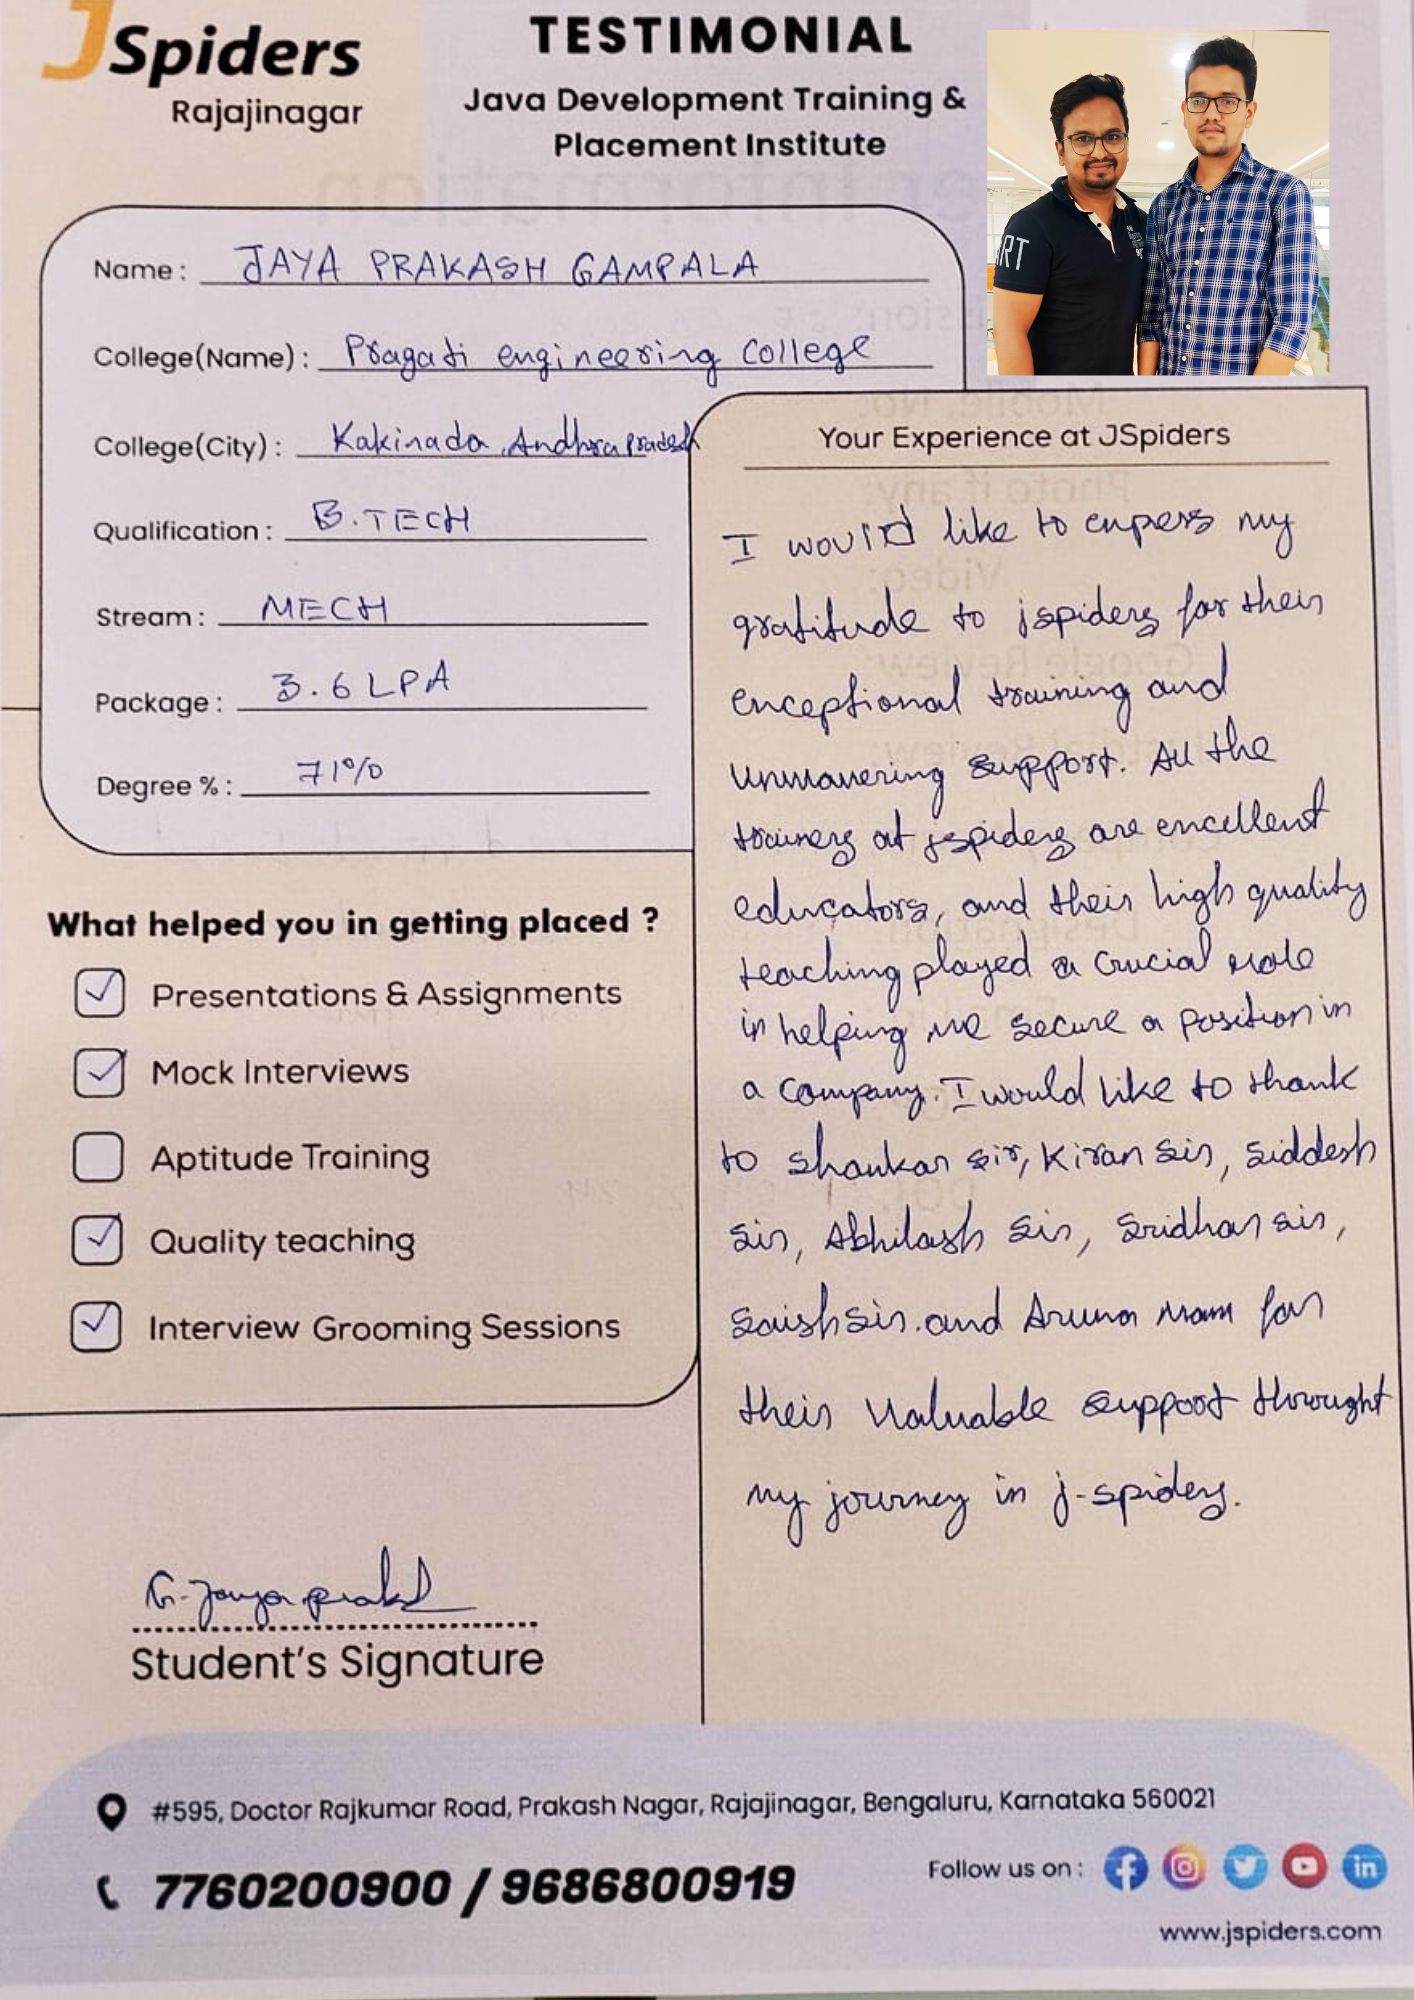 JSpiders
Rajajinagar
TESTIMONIAL
Java Development Training &
Placement Institute
ART
Name : JAYA PRAKASH GAMPALA
College(Name) : Pragati engineering College
College(City) : Kakinada, Andhra Pradesh
Qualification : B.TECH
Stream : MECH
Package : 3.6 LPA
Degree % : 71%
What helped you in getting placed ?
Presentations & Assignments
Mock Interviews
Aptitude Training
Quality teaching
Interview Grooming Sessions
G. Jaya prakash
Student's Signature
Your Experience at JSpiders
I would like to express my
gratitude to jspiders for their
exceptional training and
unwavering support. All the
trainers at jspiders are excellent
educators, and their high quality
teaching played a crucial role
in helping me secure a position in
a company. I would like to thank
to shankar sir, Kiran sir, siddesh
sir, Abhilash sir, sridhar sir,
saish sir. and Aruna mam for
their valuable support throught
my journey in j-spiders.
#595, Doctor Rajkumar Road, Prakash Nagar, Rajajinagar, Bengaluru, Karnataka 560021
7760200900 / 9686800919
Follow us on :
www.jspiders.com